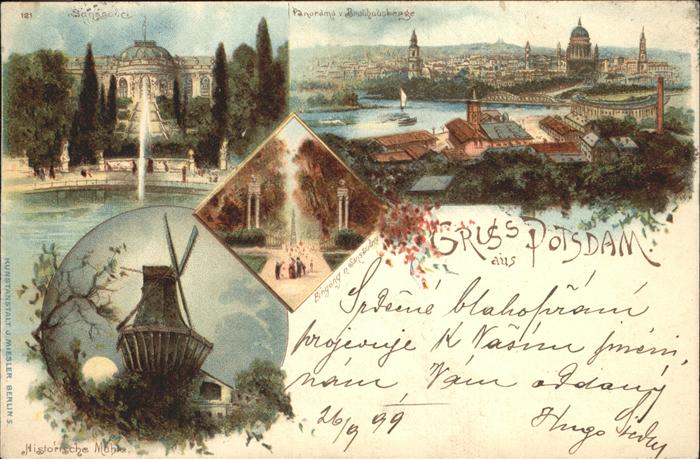 121 Sanssouci
Panorama v. Brauhausberge
Eingang n. Sanssouci
GRUSS
aus
POTSDAM
Srdečné blahopřání
projevuje K Vašim jmén.
nám Vám oddaný
26/9 99 Hugo
Historische Mühle
KUNSTANSTALT J. MIESLER, BERLIN S.